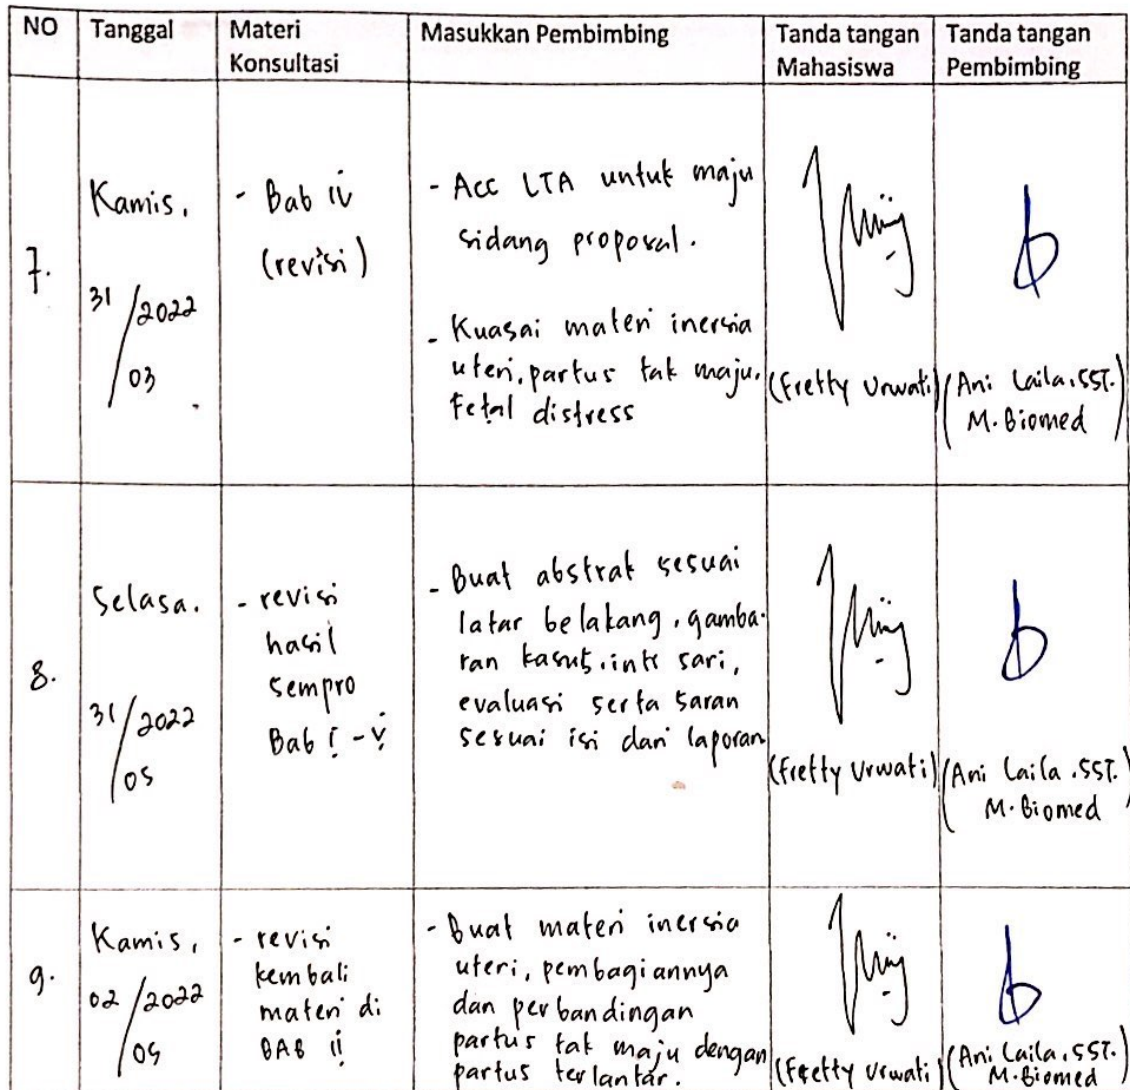 NO Tanggal Materi Konsultasi Masukkan Pembimbing Tanda tangan Mahasiswa Tanda tangan Pembimbing
7.
Kamis,
31/2022
/03
- Bab iv
(revisi)
- Acc LTA untuk maju
sidang proposal.
- Kuasai materi inersia
uteri, partus tak maju,
Fetal distress
(Fretty Urwati)
(Ani Laila, SST.
M. Biomed)
8.
Selasa,
31/2022
/05
- revisi
hasil
sempro
Bab i - v
- Buat abstrak sesuai
latar belakang, gamba-
ran kasus, inti sari,
evaluasi serta saran
sesuai isi dari laporan
(Fretty Urwati)
(Ani Laila, SST.
M. Biomed)
9.
Kamis,
02/2022
- revisi
kembali
materi di
BAB ii
- Buat materi inersia
uteri, pembagiannya
dan perbandingan
partus tak maju dengan
partus terlantar.
(Fretty Urwati)
(Ani Laila, SST.
M. Biomed)